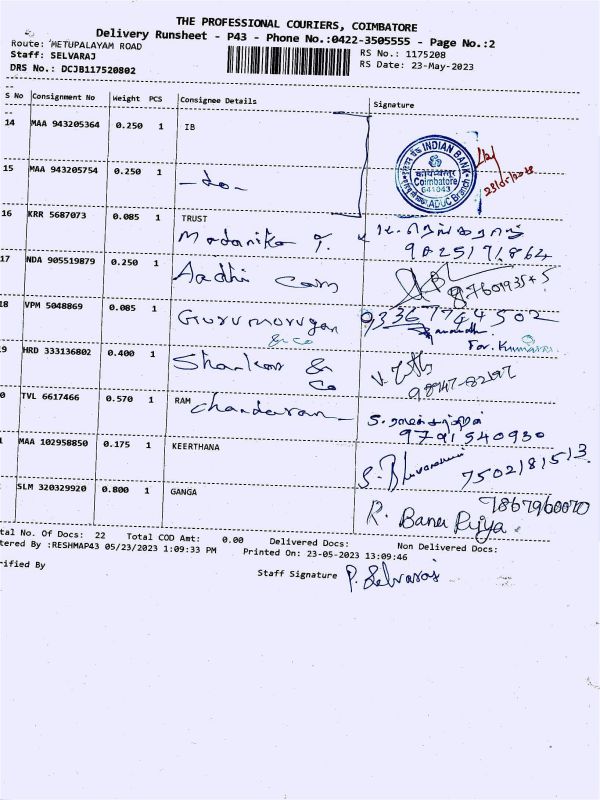 THE PROFESSIONAL COURIERS, COIMBATORE
Delivery Runsheet - P43 - Phone No.:0422-3505555 - Page No.:2
Route: METUPALAYAM ROAD
Staff: SELVARAJ
DRS No.: DCJB117520802
RS No.: 1175208
RS Date: 23-May-2023
S No Consignment No Weight PCS Consignee Details Signature
14 MAA 943205364 0.250 1 IB
INDIAN BANK
कोयम्बत्तूर
Coimbatore
641043
Branch
23/05/2023
15 MAA 943205754 0.250 1 -do-
16 KRR 5687073 0.085 1 TRUST
Madanika T.
9025171864
17 NDA 905519879 0.250 1 Aadhi Cam
18 VPM 5048869 0.085 1 Gurumurugan
& Co
9336774502
For. Kumaran
9 HRD 333136802 0.400 1 Shankar &
Co
98947-82197
0 TVL 6617466 0.570 1 RAM
chandaran
9791540930
MAA 102958850 0.175 1 KEERTHANA
S. Bhuvaneswari 7502181513.
SLM 320329920 0.800 1 GANGA
7867960070
R. Banu Priya.
tal No. Of Docs: 22 Total COD Amt: 0.00 Delivered Docs: Non Delivered Docs:
tered By :RESHMAP43 05/23/2023 1:09:33 PM Printed On: 23-05-2023 13:09:46
rified By
Staff Signature P. Selvaraj